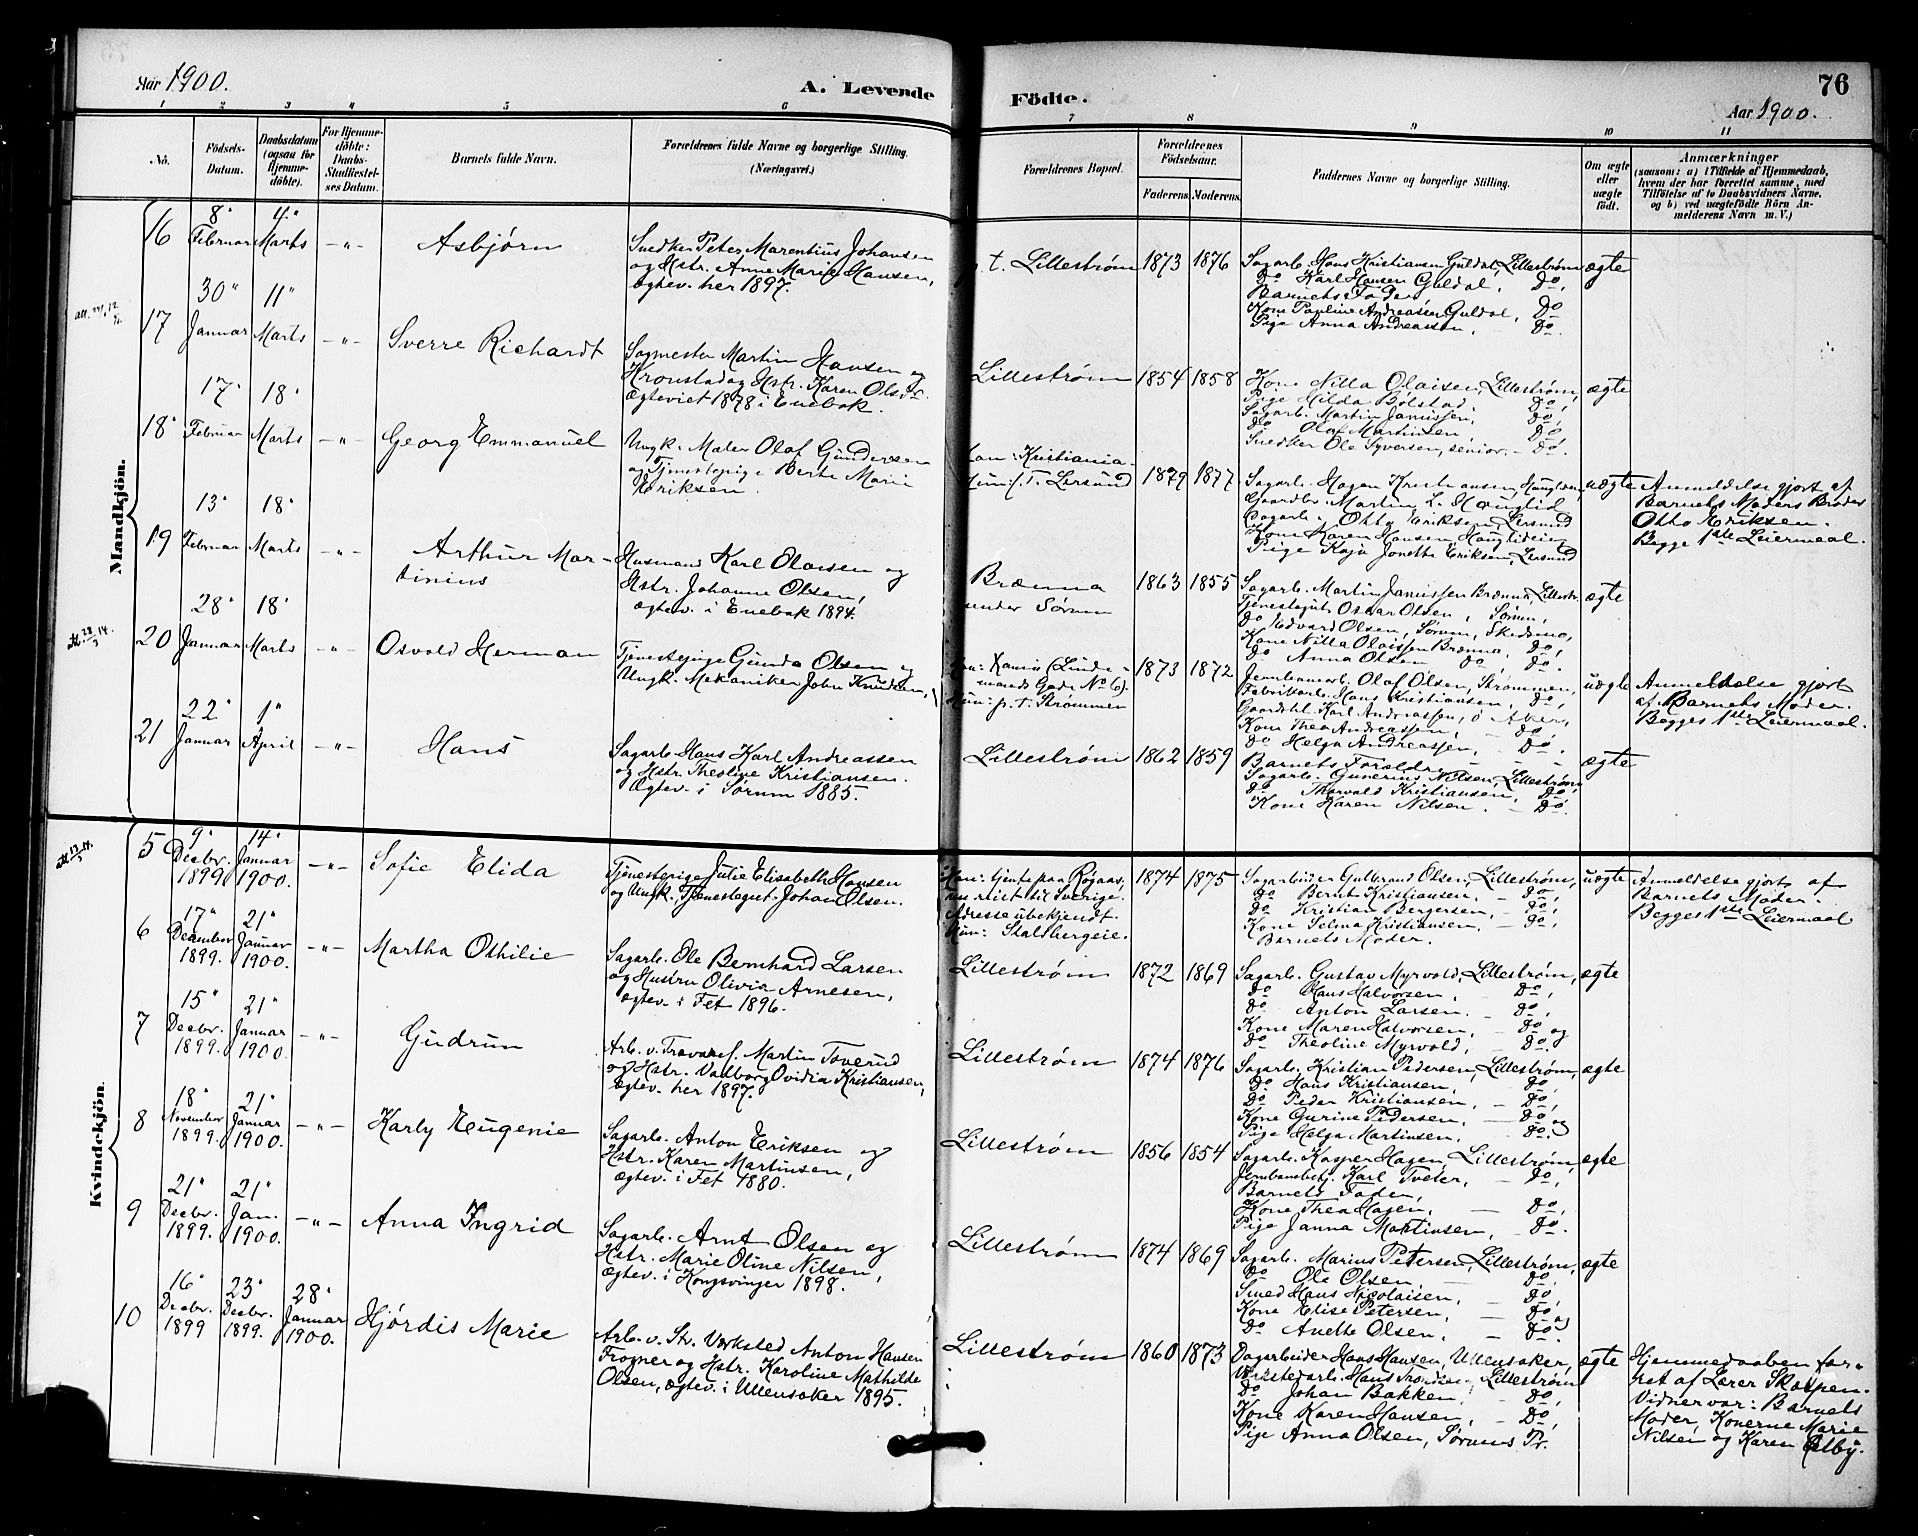 Aar 1900.
A. Levende
Födte.
76
Aar 1900.
1 2 3 4 5 6 7 8 9 10 11
No.
Födsels-Datum.
Daabsdatum (ogsaa for Hjemme-döbte).
For Hjemme-döbte: Daabs-Stadfæstel-ses Datum.
Barnets fulde Navn.
Forældrenes fulde Navne og borgerlige Stilling. (Næringsvei.)
Forældrenes Bopæl.
Forældrenes Födselsaar.
Faderens. Moderens.
Faddernes Navne og borgerlige Stilling.
Om ægte eller uægte födt.
Anmærkninger
(saasom: a) i Tilfælde af Hjemmedaab,
hvem der har forrettet samme, med
Tilföielse af to Daabsvidners Navne.
og b) ved uægtefödte Börn An-
melderens Navn m. V.)
Mandkjön.
16
8" Februar
4" Marts
-"-
Asbjørn
Snedker Peter Marentius Johansen
og Hstr. Anne Marie Hansen,
ægtev. her 1897.
p. t. Lillestrøm
1873 1876
Sagarb. Hans Kristiansen Guldal, Lillestrøm,
do Karl Hansen Guldal, do,
Barnets Fader
Kone Pauline Andreassen Guldal, do
Pige Anna Andreassen, - do.
ægte
17
30" Januar
11" Marts
-"-
Sverre Richardt
Sagmester Martin Hansen
Kronstad og Hstr. Karen Olsdtr.
Ægteviet 1878 i Enebak.
Lillestrøm
1854 1858
Kone Nilla Olaisen, Lillestrøm,
Pige Hilda Bølstad, do,
Sagarb. Martin Janussen, do,
do Olaf Martinsen, do,
Snedker Ole Syversen, senior. - do.
ægte
18
17" Februar
18" Marts
-"-
Georg Emmanuel
Ungk. Maler Olaf Gundersen
og Tjenestepige Berte Marie
Eriksen.
Han: Kristiania.
Hun: p. T. Lersund
1879 1877
Sagarb. Hagen Kristiansen, Haugliden,
Gaardbr. Martin L. Hauglid
Sagarb. Otto Eriksen, Lersund
Kone Karen Hansen, Hauglideie
Pige Kaja Jonette Eriksen, Lersund
uægte
Anmeldelse gjort af
Barnets Moders Broder
Otto Eriksen.
Begge 1ste Leiermaal.
19
13" Februar
18" Marts
-"-
Arthur Mar-
tinius
Husmand Karl Olaisen og
Hstr. Johanne Olsen,
ægtev. i Enebak 1894.
Brænna
under Sørum
1863 1855
Sagarb. Martin Janussen Brænna, Lillestr.
Tjenestegut Oskar Olsen, Sørum,
do Edvard Olsen, Sørum, Skedsmo,
Kone Nilla Olaissen Brænna, do,
do Anna Olsen do, do.
ægte
20
28" Januar
18" Marts
-"-
Osvald Herman
Tjenestepige Gunda Olsen og
Ungk. Mekaniker John Knudsen,
Han: Kania (Linde-
mands Gade No 6).
Hun: p. t. Strømmen
1873 1872
Jernbanearb. Olaf Olsen, Strømmen,
Fabrikarb. Hans Kristiansen, do,
Gaardbr. Karl Andreassen, ø Aker,
Kone Thea Andreassen, - do,
do Helga Andreassen, - do.
uægte
Anmeldelse gjort
af Barnets Moder.
Begges 1ste Leiermaal.
21
22" Januar
1" April
-"-
Hans
Sagarb. Hans Karl Andreassen
og Hstr. Theoline Kristiansen.
Ægtev. i Sørum 1885.
Lillestrøm
1862 1859
Barnets Forældre
Sagarb. Gunerius Nilsen, Lillestrøm,
do Thorvald Kristiansen, do,
Kone Karen Nilsen. - do.
ægte
Kvindekjön.
5
9" Decbr. 1899
14" Januar 1900.
-"-
Sofie Elida
Tjenestepige Julie Elisabeth Hansen
og Ungk. Tjenestegut Johan Olsen.
Han: tjente paa Røgaas,
nu reist til Sverige.
Adresse ubekjendt.
Hun: Stalsbergeie.
1874 1875
Sagarbeider Gulbrand Olsen, Lillestrøm,
do Bernt Kristiansen, - do,
do Kristian Bergersen, - do,
Kone Selma Kristiansen, - do,
Barnets Moder.
uægte
Anmeldelse gjort af
Barnets Moder.
Begges 1ste Leiermaal
6
17" December 1899.
21" Januar 1900.
-"-
Martha Othilie
Sagarb. Ole Bernhard Larsen
og Hustru Olivia Arnesen,
ægtev. i Fet 1896.
Lillestrøm
1872 1869
Sagarb. Gustav Myrvold, Lillestrøm,
do Hans Halvorsen, - do,
do Anton Larsen. - do,
Kone Maren Halvorsen, - do og
do Theoline Myrvold, - do.
ægte
7
15" Decbr. 1899.
21" Januar 1900.
-"-
Gudrun
Arb. v. Travaref. Martin Toverud
og Hstr. Valborg Ovidia Kristiansen,
ægtev. her 1897.
Lillestrøm
1874 1876
Sagarb. Kristian Pedersen, Lillestrøm,
do Hans Kristiansen, do,
do Peder Kristiansen, - do,
Kone Gurine Pedersen, - do og
Pige Helga Martinsen, - do.
ægte
8
18" November 1899.
21" Januar 1900.
-"-
Karly Eugenie
Sagarb. Anton Eriksen og
Hstr. Karen Martinsen,
ægtev. i Fet 1880.
Lillestrøm
1856 1854
Sagarb. Kasper Hagen, Lillestrøm,
Jernbanebetj. Karl Tveter, - do,
Barnets Fader,
Kone Thea Hagen, - do,
Pige Janna Martinsen, - do.
ægte
9
21" Decbr. 1899.
21" Jan. 1900.
-"-
Anna Ingrid
Sagarb. Arnt Olsen og
Hstr. Marie Oline Nilsen,
ægtev. i Kongsvinger 1898.
Lillestrøm
1874 1869
Sagarb. Marius Petersen, Lillestrøm,
do Ole Olsen, - do,
Smed Hans Nicolaisen, - do,
Kone Elise Petersen, - do og
do Anette Olsen, - do.
ægte
10
16" Decbr. 1899
23" Decbr. 1899.
28" Januar 1900.
Hjørdis Marie
Arb. v. St. Værksted Anton Hansen
Frogner og Hstr. Karoline Mathilde
Olsen, ægtev. i Ullensaker 1895.
Lillestrøm
1860 1873
Dagarbeider Hans Hansen, Ullensaker,
Værkstedarb. Hans Lillestrøm
do Johan Bakken, do,
Kone Karen Hansen, - do,
Pige Anna Olsen, Sørums Pr.
ægte
Hjemmedaaben for-
ret. af Lærer Skarpen.
Vidner var: Barnets
Moder, Konerne Marie
Nilsen og Karen Ølby.